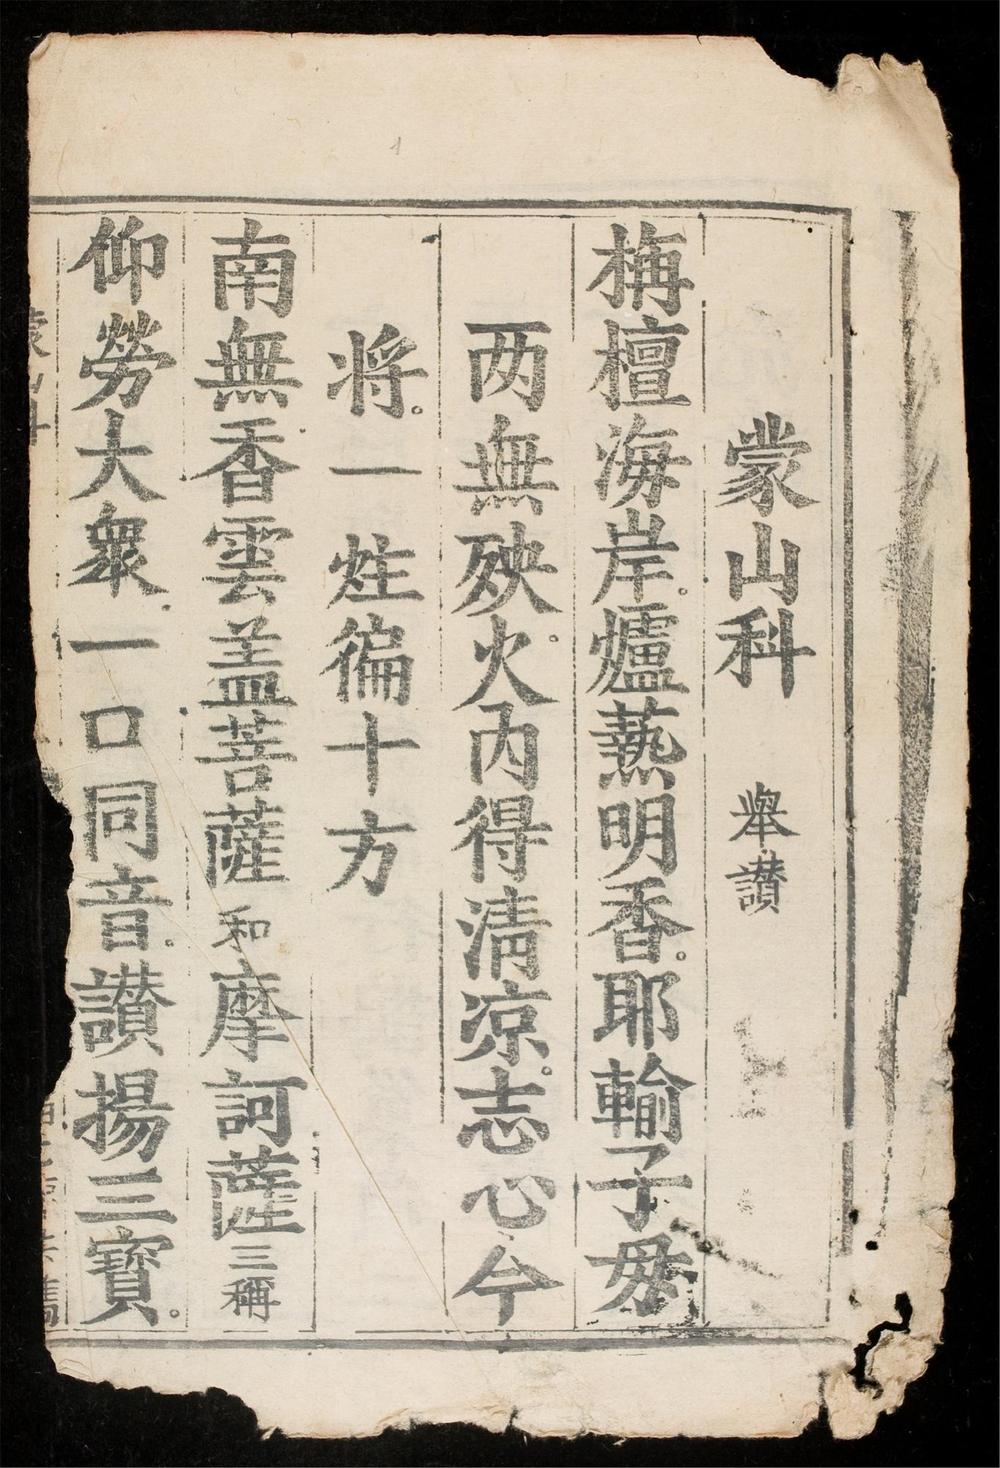 蒙山科　舉讃
栴檀海岸。爐爇明香。耶輸子毋
两無殃。火內得清凉。志心今
将。一炷徧十方
南無香雲盖菩薩 和 摩訶薩 三稱
仰勞大衆一口同音。讃揚三寶。
蒙山科